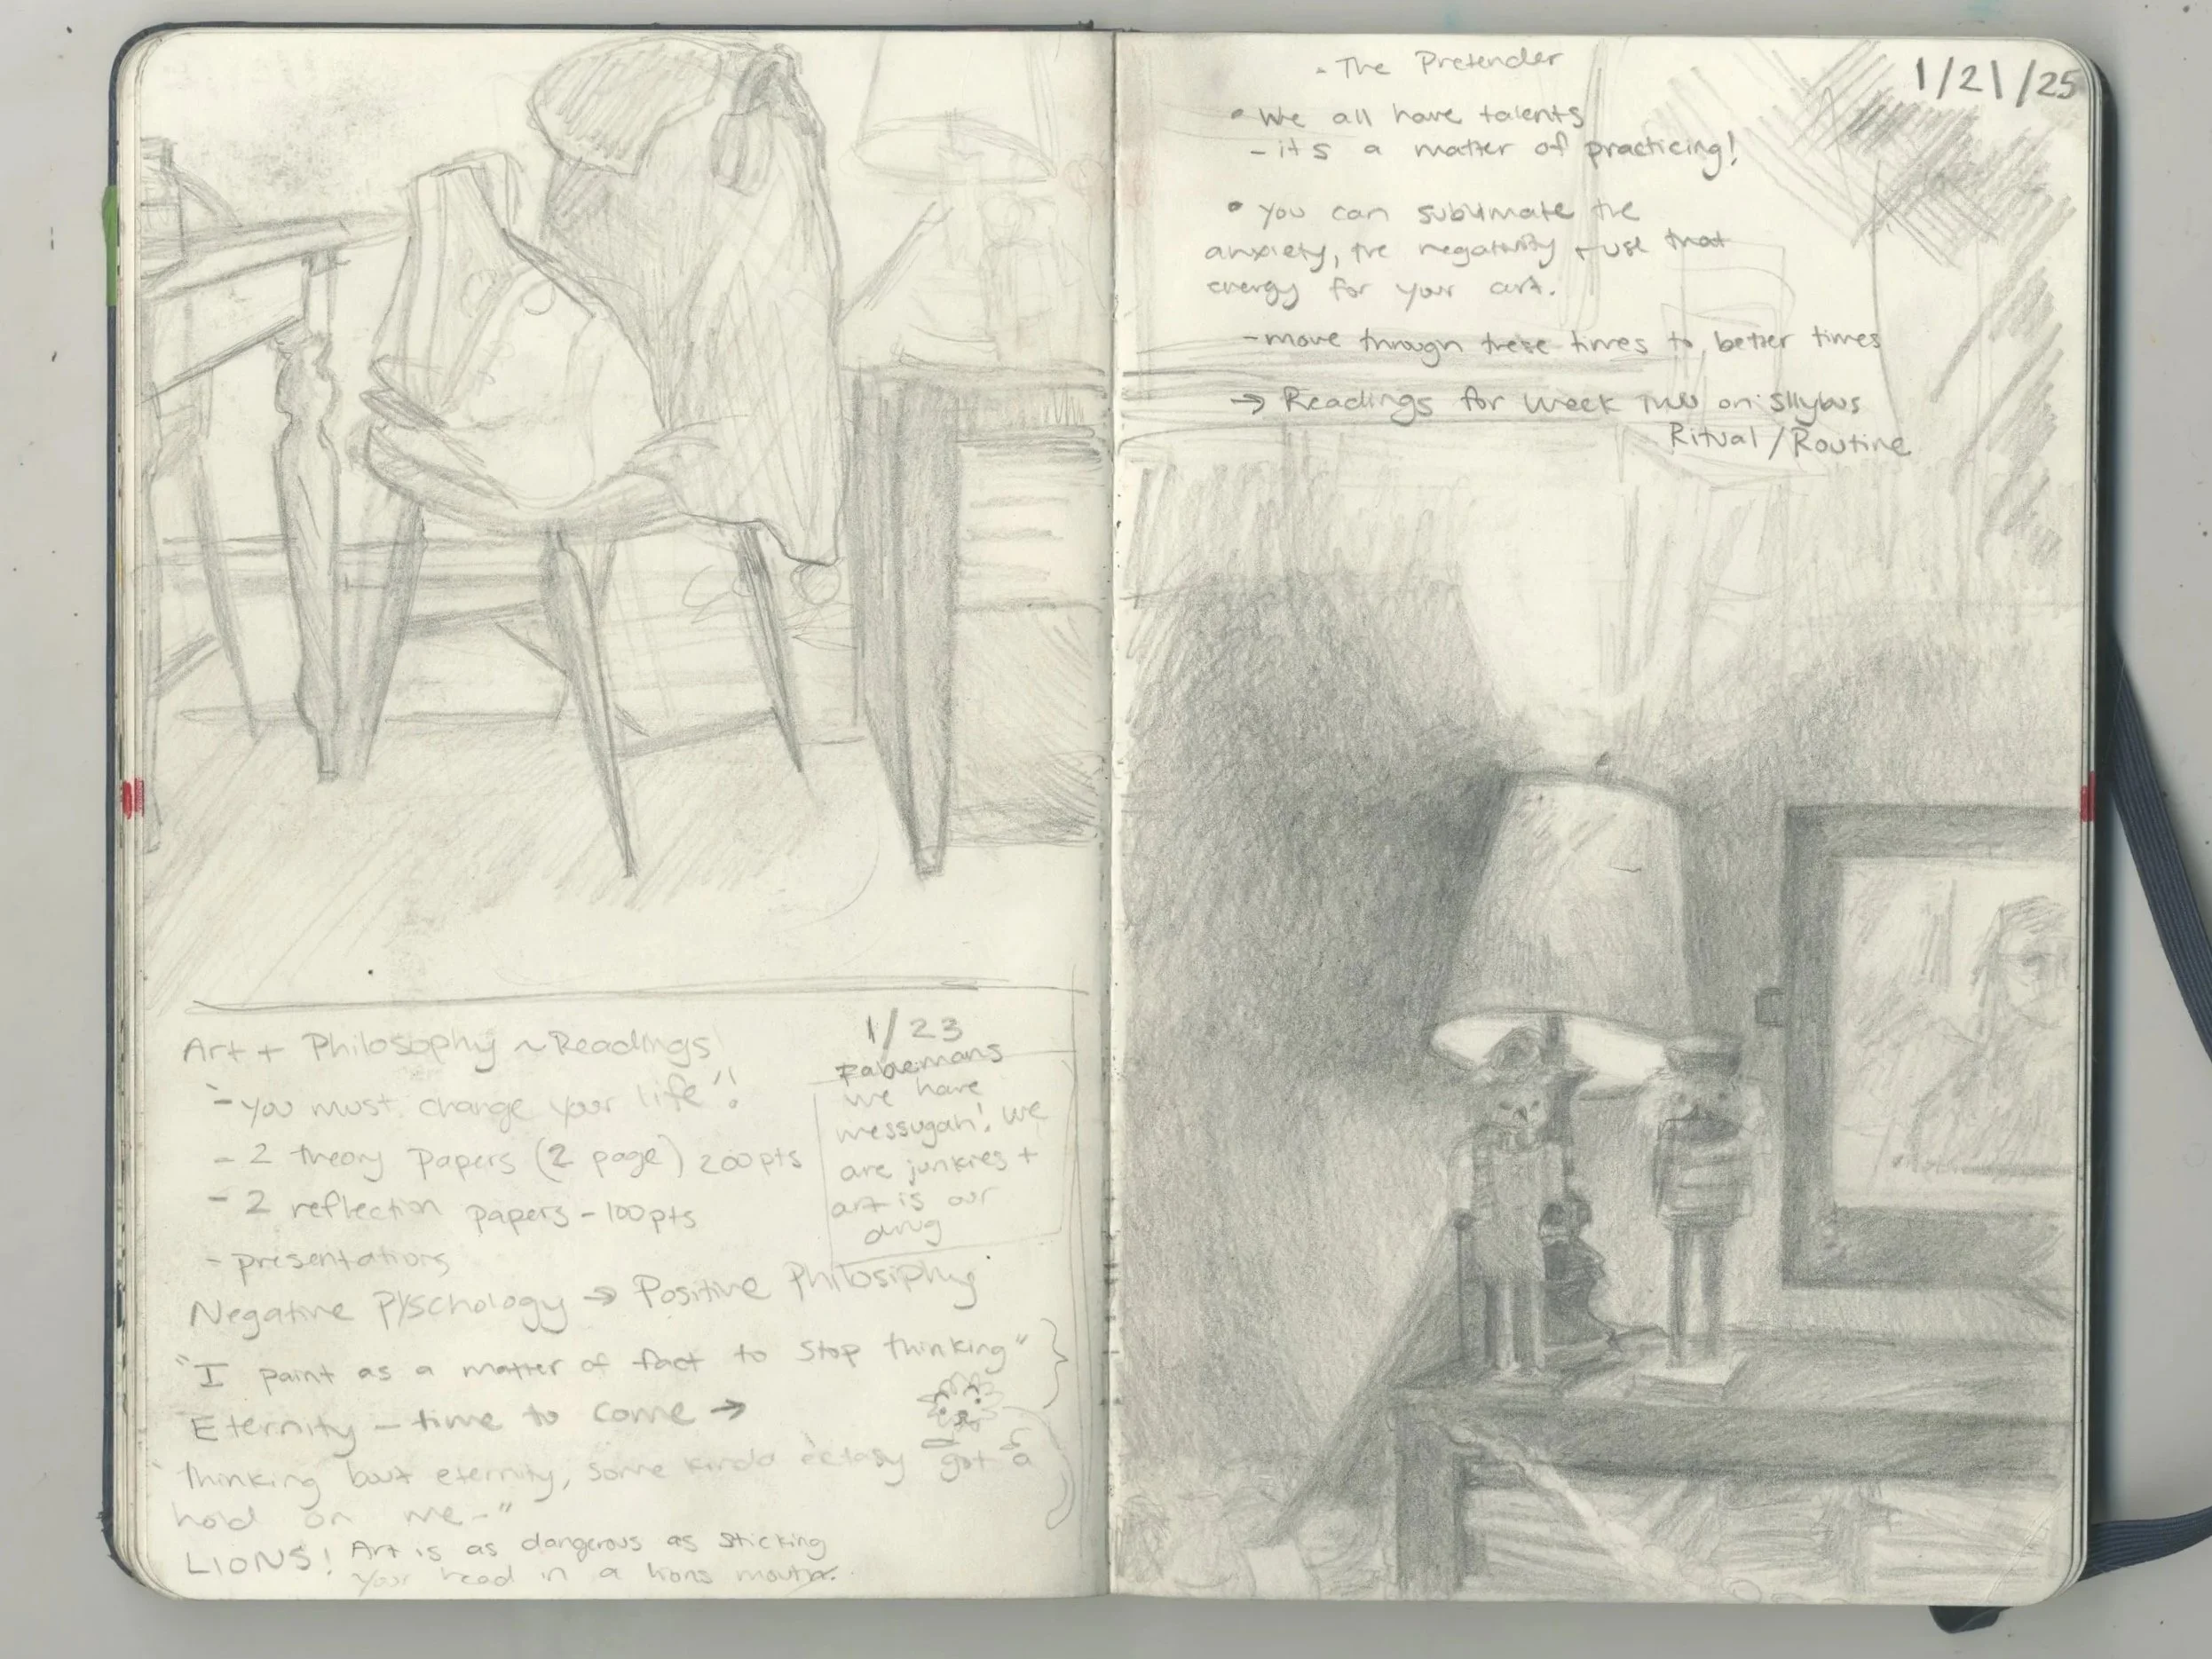 Art + Philosophy ~ Readings
- "you must change your life"!
- 2 theory papers (2 page) 200pts
- 2 reflection papers - 100pts
- presentations
1/23
Fabemans
we have
messugah! we
are junkies +
art is our
drug
Negative Pyschology → Positive Philosiphy
"I paint as a matter of fact to stop thinking"
Eternity - time to come →
"thinking bout eternity, some kinda ectasy got a
hold on me-"
LIONS! Art is as dangerous as sticking
your head in a lions mouth.
- The Pretender
1/21/25
• We all have talents
- it's a matter of practicing!
• you can sublimate the
anxiety, the negativity + use that
energy for your art.
- move through these times to better times
→ Readings for week two on sllybus
Ritual/Routine